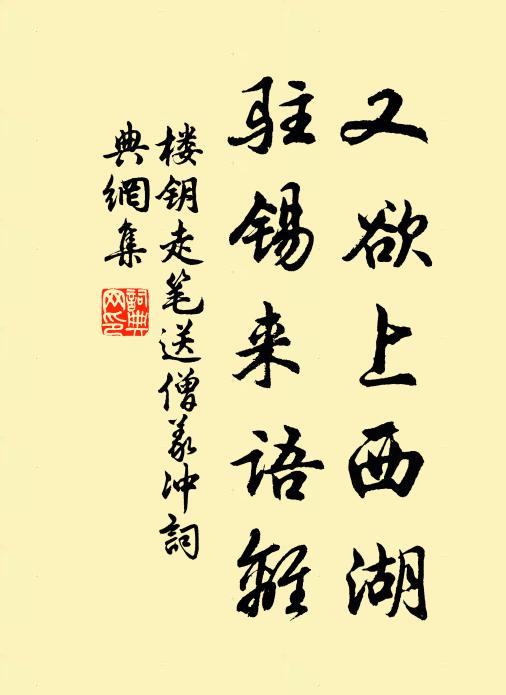 又欲上西湖
驻锡来语離
楼钥走笔送僧义冲詞
典網集
詞典网印